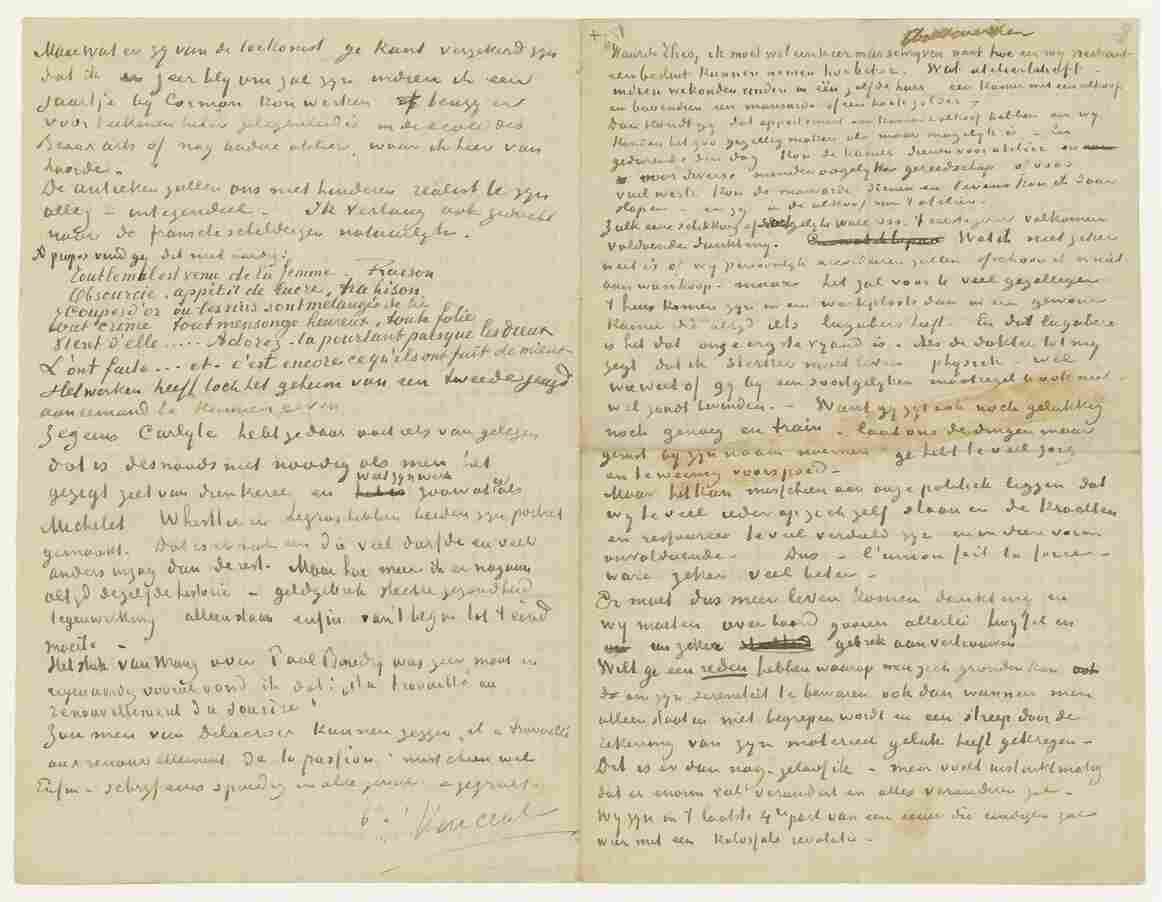 Maar wat er zij van de toekomst ge kunt verzekerd zijn
dat ik er zeer blij om zal zijn indien ik een
jaartje bij Cormon kon werken of tenzij er
voor teekenen beter gelegenheid is in de ecole des
Beaux arts of nog andere atelier, waar ik hier van
hoorde.
De antieken zullen ons niet hinderen realist te zijn
allez – integendeel – Ik verlang ook geducht
naar de fransche schilderijen natuurlijk –
A propos vind gij dit niet aardig:
Tout le mal est venu de la femme – Raison
Obscurcie, appétit de lucre, trahison
Coupes d'or où les vins sont mélangés de lie
tout crime tout mensonge heureux, toute folie
Vient d'elle ..... Adorez-la pourtant puisque les dieux
L'ont faite ... et c'est encore ce qu'ils ont fait de mieux –
Het werken heeft toch het geheim van een tweede jeugd
aan iemand te kunnen geven
Zeg eens Carlyle hebt ge daar ooit iets van gelezen
dat is desnoods niet noodig als men het
wat zijn werk
gezegt ziet van en zoowat als
Michelet Whistler en Legros hebben beiden zijn portret
gemaakt. Dat is er ook een die veel durfde en veel
anders inzag dan de rest. Maar hoe meer ik er nazoek
altijd dezelfde historie – geldgebrek slechte gezondheid
tegenwerking alleenstaan enfin van 't begin tot 't eind
moeite.
Het stuk van Mantz over Paul Baudry was zeer mooi en
vooral vond ik dat: „il a travaillé au
renouvellement du sourire"
Zou men van Delacroix kunnen zeggen, il a travaillé
au renouvellement de la passion misschien wel
Enfin – schrijf eens spoedig en alles goeds – gegroet.
b. à t. Vincent
Waarde Theo, ik moet wel een keer maar schrijven want hoe eer wij
een besluit kunnen nemen hoe beter. Wat atelier betreft –
indien we konden vinden in één zelfde huis een kamer met een alkoof
en bovendien een mansarde of een hoek zolder –
Dan kondt gij dat appartement een kamer en alkoof hebben en wij
konden het zoo gezellig maken als maar mogelijk is – en
gedurende den dag kon de kamer dienen voor atelier en
voor diverse min of meer oogelijke gereedschap of voor
vuil werk kon de mansarde dienen en tevens kon ik daar
slapen – en gij in de alkoof van 't atelier.
Zulk eene schikking of soortgelijke ware voor 't eerste jaar volkomen
voldoende dunkt mij. Wat ik niet zeker
weet is of wij persoonlijk accordeeren zullen ofschoon ik er niet
aan wanhoop – maar het zal voor U veel gezelliger
t'huis komen zijn in een werkplaats dan in een gewone
kamer die altijd iets lugubers heeft. En dat lugubere
is het dat onze ergste vijand is – Als de dokter tot mij
zegt dat ik sterker moet leven physiek wel
wie weet of gij bij een soortgelijken maatregel U ook niet
wel zoudt bevinden. – Want gij zijt ook noch gelukkig
noch genoeg en train – laat ons de dingen maar
gerust bij zijn naam noemen ge hebt te veel zorg
en te weinig voorspoed –
Maar het kan misschien aan onze politiek liggen dat
wij te veel ieder op zich zelf staan en de krachten
en resources te veel verdeeld zijn en in dien vorm
onvoldoende. Dus – l'union fait la force –
ware zeker veel beter –
Er moet dus meer leven komen dunkt mij en
wij moeten over boord gooien allerlei twijfel en
een zeker gebrek aan vertrouwen
Wilt ge een reden hebben waarop men zich gronden kan
om zijn sereniteit te bewaren ook dan wanneer men
alleen staat en niet begrepen wordt en een streep door de
rekening van zijn materieel geluk heeft gekregen –
Dit is er dan nog – geloof ik – men voelt instinktmatig
dat er enorm veel verandert en alles veranderen zal –
Wij zijn in 't laatste 4de part van een eeuw die eindigen zal
weer met een kolossale revolutie –